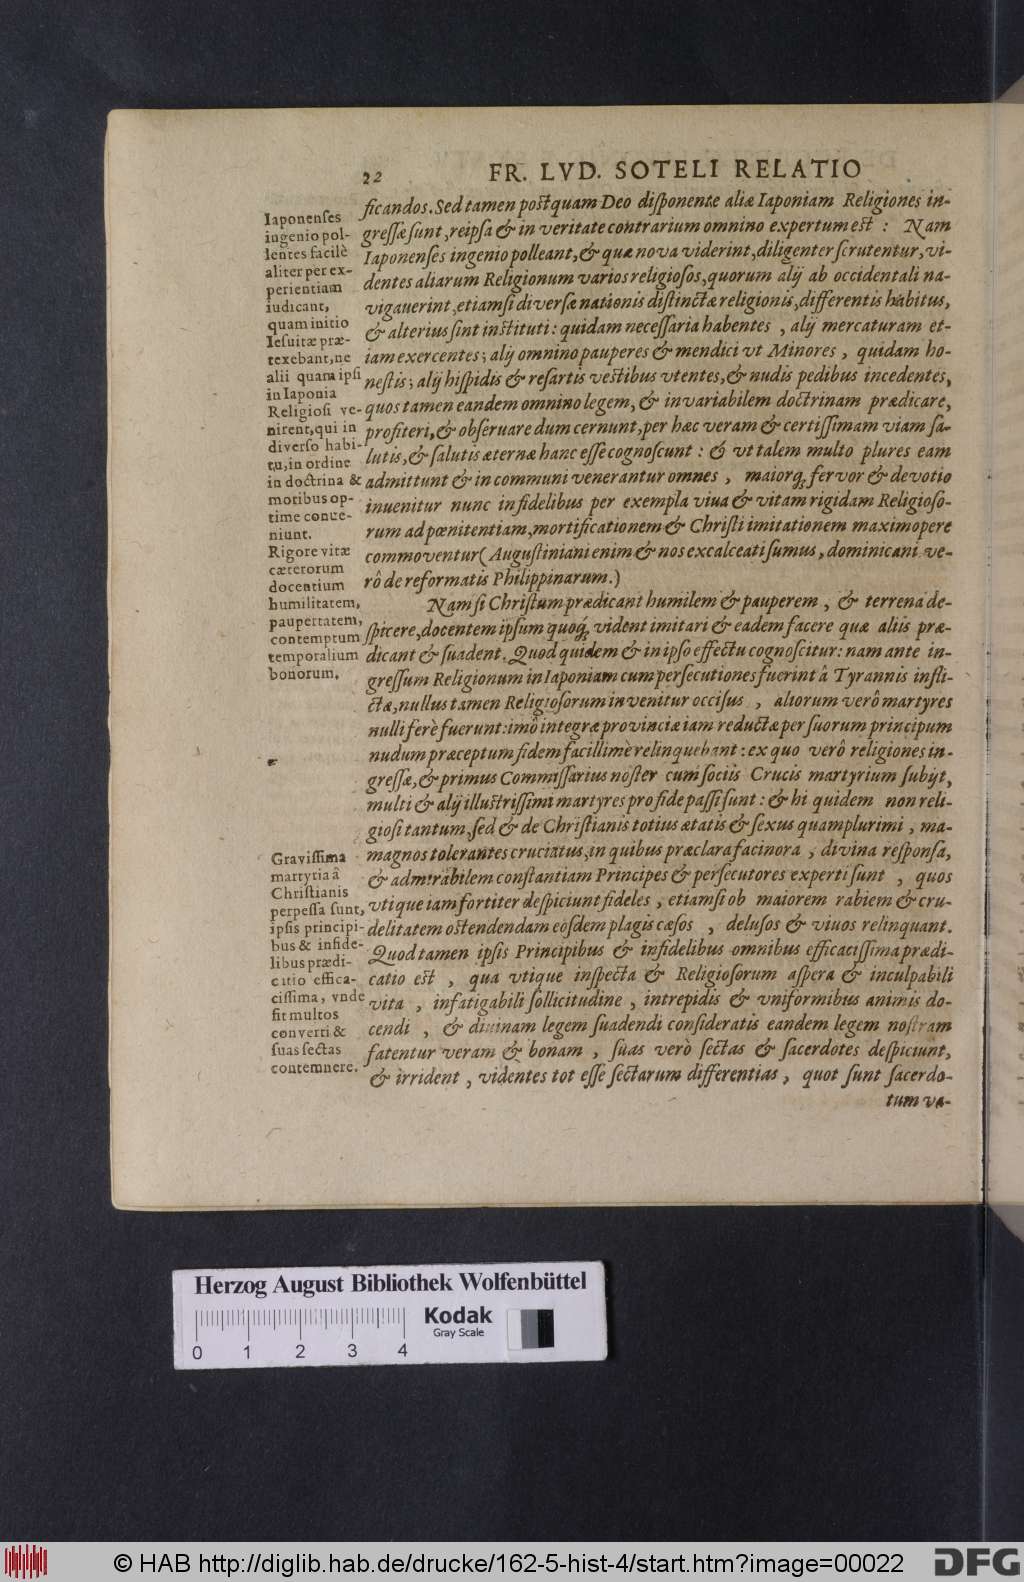 22 FR. LVD. SOTELI RELATIO
ficandos. Sed tamen postquam Deo disponente aliæ Iaponiam Religiones in-
gressæ sunt, reipsa & in veritate contrarium omnino expertum est : Nam
Iaponenses ingenio polleant, & quæ nova viderint, diligenter scrutentur, vi-
dentes aliarum Religionum varios religiosos, quorum alij ab occidentali na-
vigauerint, etiamsi diversæ nationis distinctæ religionis, differentis habitus,
& alterius sint instituti : quidam necessaria habentes , alij mercaturam et-
iam exercentes ; alij omnino pauperes & mendici vt Minores , quidam ho-
nestis ; alij hispidis & resartis vestibus vtentes, & nudis pedibus incedentes,
quos tamen eandem omnino legem, & invariabilem doctrinam prædicare,
profiteri, & observare dum cernunt, per hæc veram & certissimam viam sa-
lutis, & salutis æternæ hanc esse cognoscunt : & vt talem multo plures eam
admittunt & in communi venerantur omnes , maiorq́; fervor & devotio
inuenitur nunc in fidelibus per exempla viua & vitam rigidam Religioso-
rum ad pœnitentiam, mortificationem & Christi imitationem maximopere
commoventur ( Augustiniani enim & nos excalceati sumus, dominicani ve-
rô de reformatis Philippinarum. )
Nam si Christum prædicant humilem & pauperem , & terrena de-
spicere, docentem ipsum quoq́; vident imitari & eadem facere quæ aliis præ-
dicant & suadent. Quod quidem & in ipso effectu cognoscitur : nam ante in-
gressum Religionum in Iaponiam cum persecutiones fuerint â Tyrannis infli-
ctæ, nullus tamen Religiosorum invenitur occisus , aliorum verô martyres
nulli ferè fuerunt : imô integræ provinciæ iam reductæ per suorum principum
nudum præceptum fidem facillimè relinquebant : ex quo verô religiones in-
gressæ, & primus Commissarius noster cum sociis Crucis martyrium subÿt,
multi & alij illustrissimi martyres pro fide passi sunt : & hi quidem non reli-
giosi tantum, sed & de Christianis totius ætatis & sexus quamplurimi , ma-
magnos tolerantes cruciatus, in quibus præclara facinora , divina responsa,
& admirabilem constantiam Principes & persecutores experti sunt , quos
vtique iam fortiter despiciunt fideles , etiamsi ob maiorem rabiem & cru-
delitatem ostendendam eosdem plagis cæsos , delusos & viuos relinquant.
Quod tamen ipsis Principibus & infidelibus omnibus efficacissima prædi-
catio est , qua vtique inspecta & Religiosorum aspera & inculpabili
vita , infatigabili sollicitudine , intrepidis & vniformibus animis do-
cendi , & diuinam legem suadendi consideratis eandem legem nostram
fatentur veram & bonam , suas verò sectas & sacerdotes despiciunt,
& irrident , videntes tot esse sectarum differentias , quot sunt sacerdo-
tum va-
Iaponenses
ingenio pol-
lentes facilè
aliter per ex-
perientiam
iudicant,
quam initio
Iesuitæ præ-
texebant, ne
alii quam ipsi
in Iaponia
Religiosi ve-
nirent, qui in
diverso habi-
tu, in ordine
in doctrina &
moribus op-
time conue-
niunt.
Rigore vitæ
cæterorum
docentium
humilitatem,
paupertatem,
contemptum
temporalium
bonorum.
Gravissima
martyria â
Christianis
perpessa sunt,
ipsis principi-
bus & infide-
libus prædi-
catio effica-
cissima, vnde
fit multos
converti &
suas sectas
contemnere.
Herzog August Bibliothek Wolfenbüttel
Kodak
Gray Scale
0 1 2 3 4
© HAB http://diglib.hab.de/drucke/162-5-hist-4/start.htm?image=00022
DFG